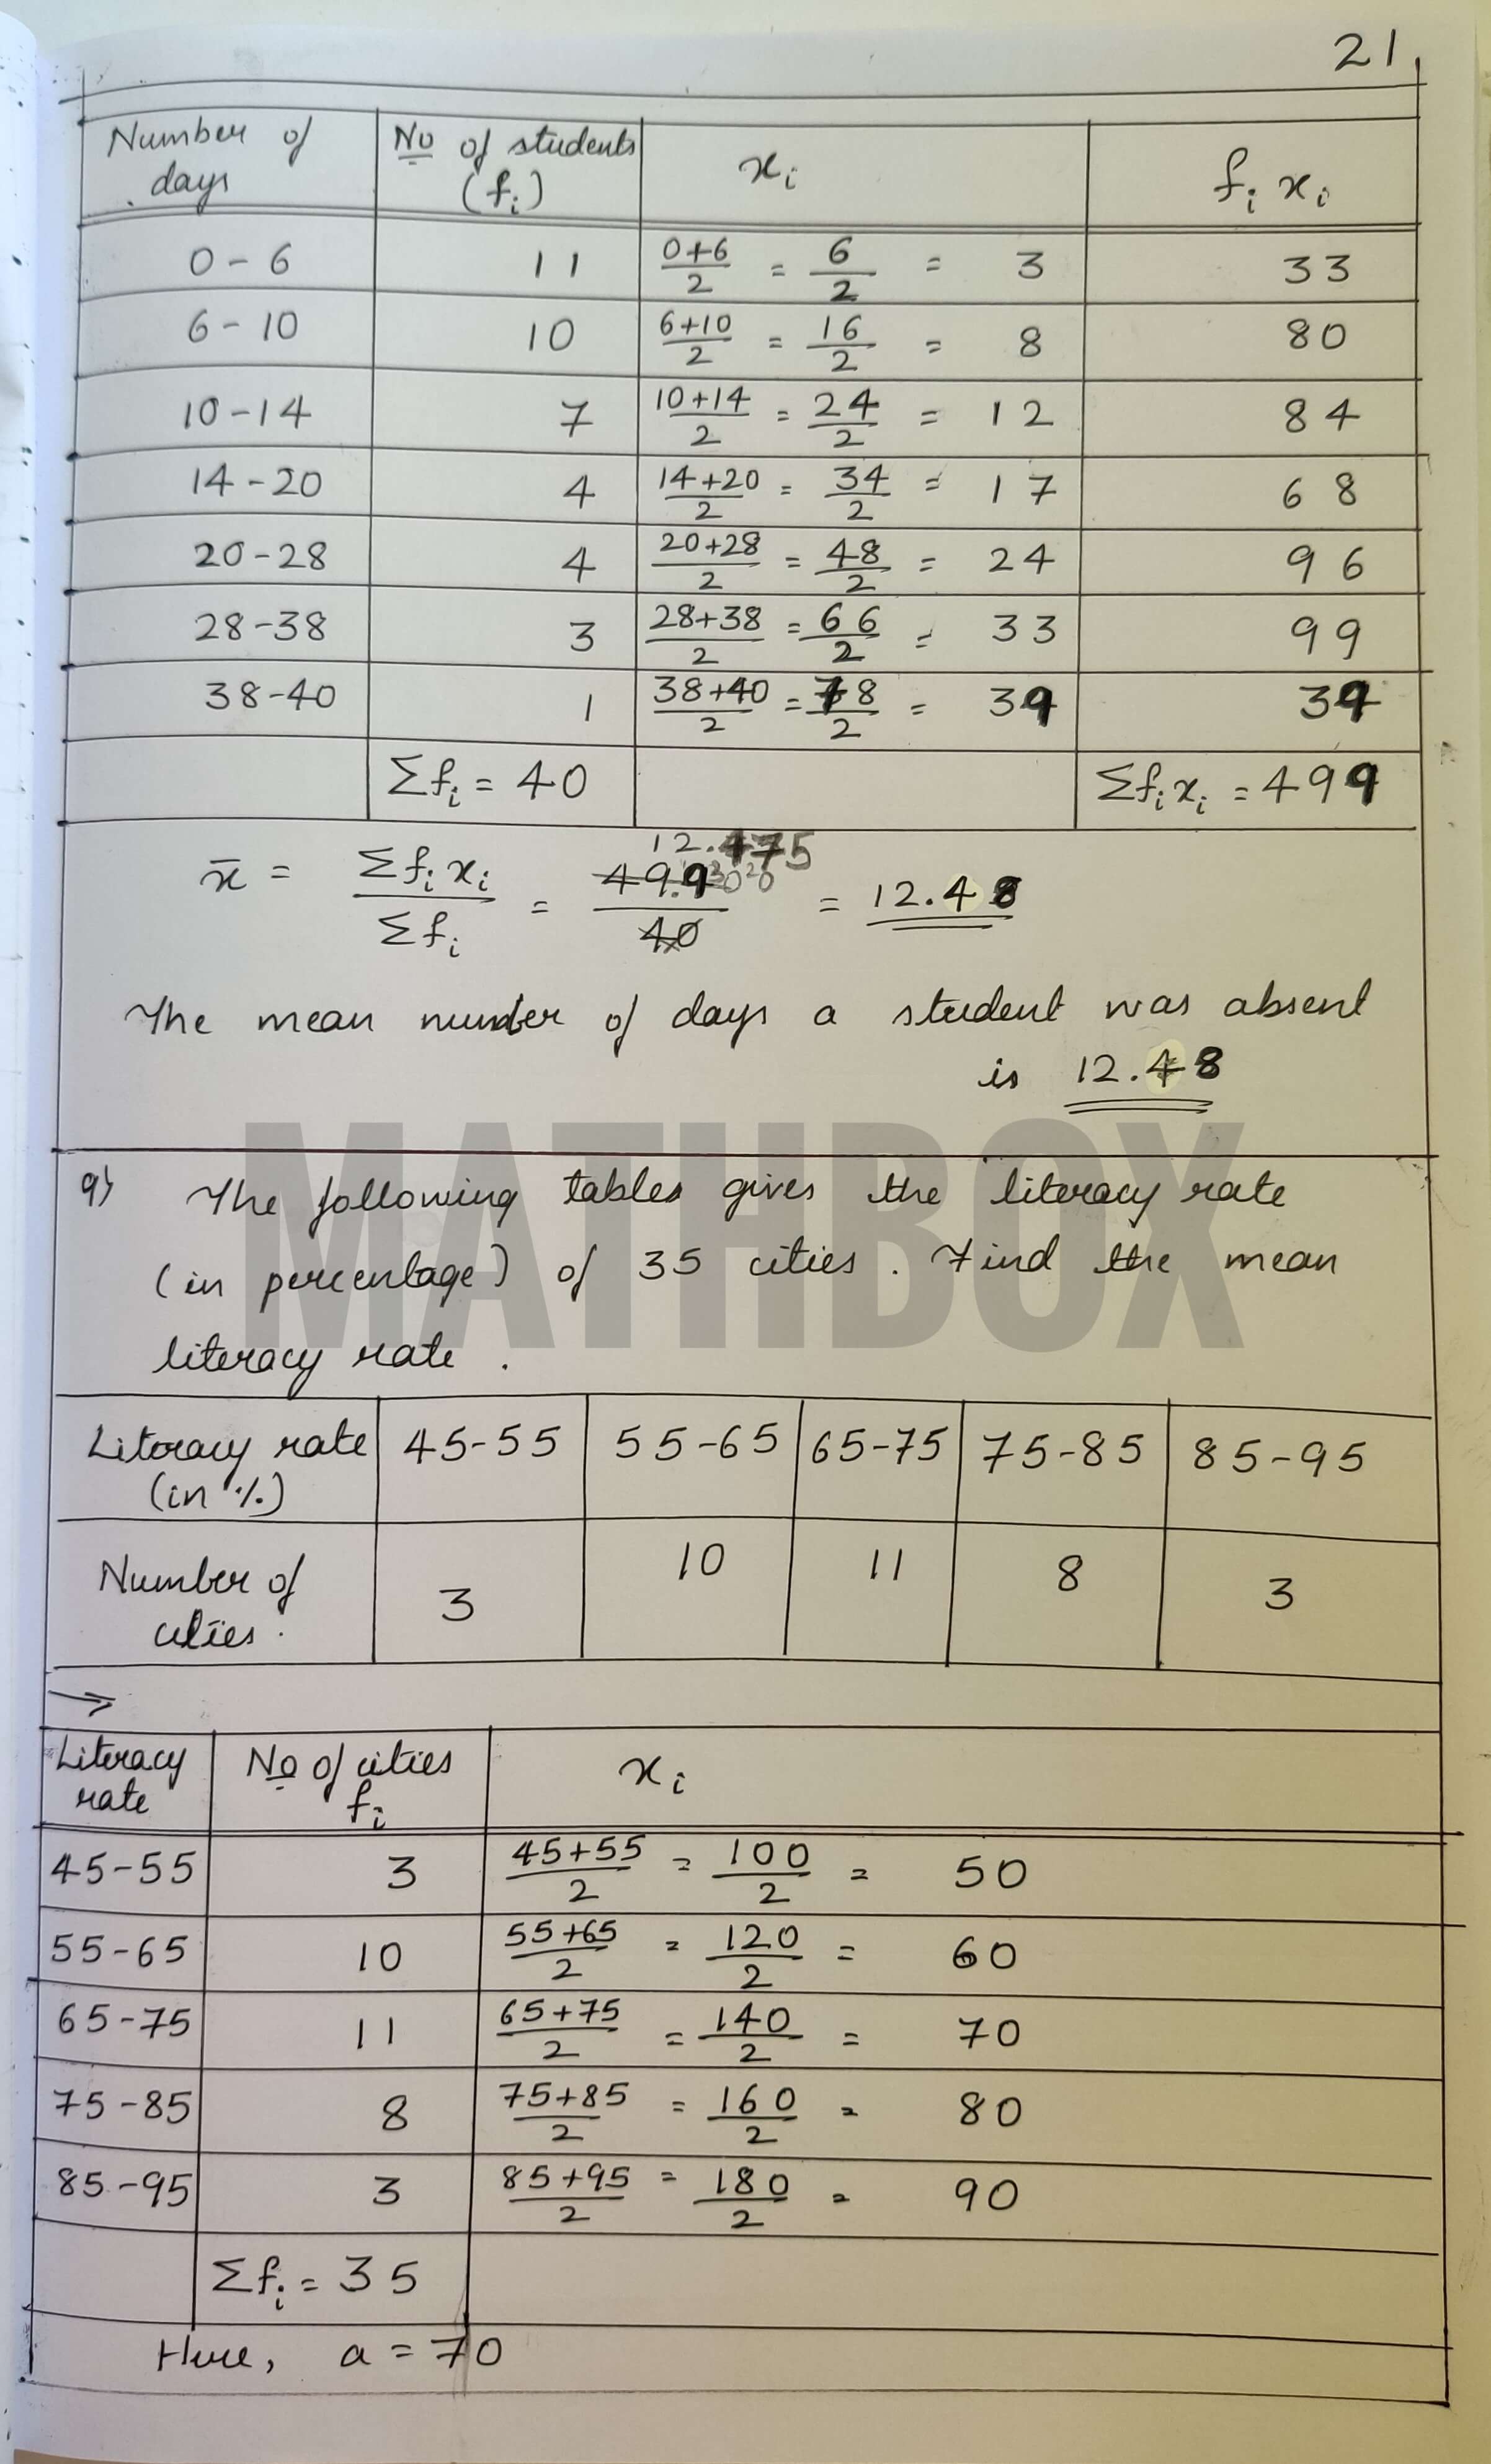 21.
Number of days | No of students (fi) | xi | fi xi
0-6 | 11 | 0+6/2 = 6/2 = 3 | 33
6-10 | 10 | 6+10/2 = 16/2 = 8 | 80
10-14 | 7 | 10+14/2 = 24/2 = 12 | 84
14-20 | 4 | 14+20/2 = 34/2 = 17 | 68
20-28 | 4 | 20+28/2 = 48/2 = 24 | 96
28-38 | 3 | 28+38/2 = 66/2 = 33 | 99
38-40 | 1 | 38+40/2 = 78/2 = 39 | 39
Σfi = 40 | Σfixi = 499
x̄ = Σfixi/Σfi = 499/40 12.475 = 12.48
The mean number of days a student was absent
is 12.48
MATHBOX
9) The following tables gives the literacy rate
(in percentage) of 35 cities. Find the mean
literacy rate.
Literacy rate (in %) | 45-55 | 55-65 | 65-75 | 75-85 | 85-95
Number of cities. | 3 | 10 | 11 | 8 | 3
→
Literacy rate | No of cities fi | xi
45-55 | 3 | 45+55/2 = 100/2 = 50
55-65 | 10 | 55+65/2 = 120/2 = 60
65-75 | 11 | 65+75/2 = 140/2 = 70
75-85 | 8 | 75+85/2 = 160/2 = 80
85-95 | 3 | 85+95/2 = 180/2 = 90
Σfi = 35
Here, a = 70